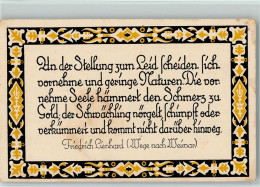 An der Stellung zum Leid scheiden sich
vornehme und geringe Naturen. Die vor
nehme Seele hämmert den Schmerz zu
Gold, der Schwächling nörgelt, schimpft oder
verkümmert und kommt nicht darüber hinweg.
Friedrich Lienhard (Wege nach Weimar)